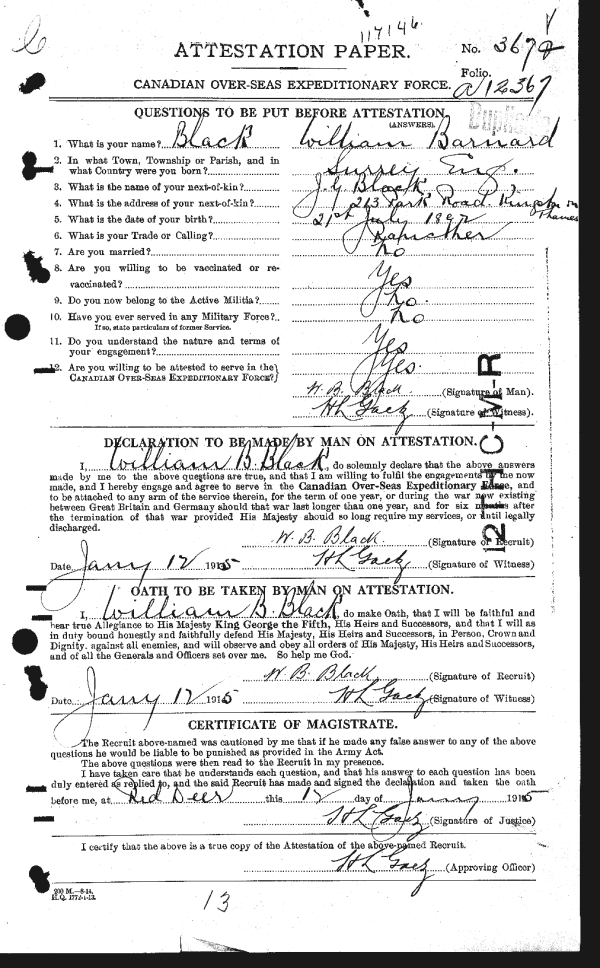 117146
ATTESTATION PAPER.
No. 3672
Folio.
CANADIAN OVER-SEAS EXPEDITIONARY FORCE.
a12367
Duplicate
QUESTIONS TO BE PUT BEFORE ATTESTATION.
(ANSWERS).
1. What is your name? Black William Barnard
2. In what Town, Township or Parish, and in
what Country were you born? Surrey Eng.
3. What is the name of your next-of-kin? J. G. Black
4. What is the address of your next-of-kin? 243 Park Road Kingston on Thames
5. What is the date of your birth? 21st July 1892
6. What is your Trade or Calling? Rancher
7. Are you married? No
8. Are you willing to be vaccinated or re-
vaccinated? Yes
9. Do you now belong to the Active Militia? No.
10. Have you ever served in any Military Force? No
If so, state particulars of former Service.
11. Do you understand the nature and terms of
your engagement? Yes
12. Are you willing to be attested to serve in the
CANADIAN OVER-SEAS EXPEDITIONARY FORCE? Yes.
W. B. Black (Signature of Man).
H L Gaetz (Signature of Witness).
12TH C-M-R
DECLARATION TO BE MADE BY MAN ON ATTESTATION.
I, William B. Black, do solemnly declare that the above answers
made by me to the above questions are true, and that I am willing to fulfil the engagements by me now
made, and I hereby engage and agree to serve in the Canadian Over-Seas Expeditionary Force, and
to be attached to any arm of the service therein, for the term of one year, or during the war now existing
between Great Britain and Germany should that war last longer than one year, and for six months after
the termination of that war provided His Majesty should so long require my services, or until legally
discharged.
W. B. Black (Signature of Recruit)
Date Jany 12 1915 H L Gaetz (Signature of Witness)
OATH TO BE TAKEN BY MAN ON ATTESTATION.
I, William B. Black, do make Oath, that I will be faithful and
bear true Allegiance to His Majesty King George the Fifth, His Heirs and Successors, and that I will as
in duty bound honestly and faithfully defend His Majesty, His Heirs and Successors, in Person, Crown and
Dignity, against all enemies, and will observe and obey all orders of His Majesty, His Heirs and Successors,
and of all the Generals and Officers set over me. So help me God.
W. B. Black (Signature of Recruit)
Date Jany 12 1915 H L Gaetz (Signature of Witness)
CERTIFICATE OF MAGISTRATE.
The Recruit above-named was cautioned by me that if he made any false answer to any of the above
questions he would be liable to be punished as provided in the Army Act.
The above questions were then read to the Recruit in my presence.
I have taken care that he understands each question, and that his answer to each question has been
duly entered as replied to, and the said Recruit has made and signed the declaration and taken the oath
before me, at Red Deer this 12 day of Jany 1915
H L Gaetz (Signature of Justice)
I certify that the above is a true copy of the Attestation of the above-named Recruit.
H L Gaetz (Approving Officer)
200 M.—8-14.
H.Q. 1772-1-13.
13